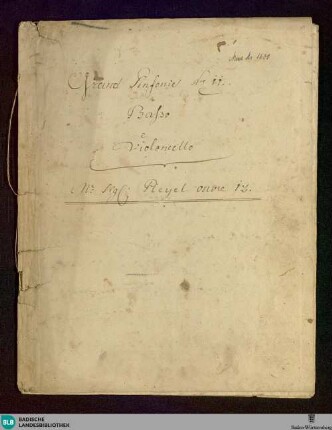 Mus. Hs. 1400
Grand Sinfonie No 11.
Basso
e
Violoncello
Pleyel
BLB BADISCHE
LANDESBIBLIOTHEK
Baden-Württemberg